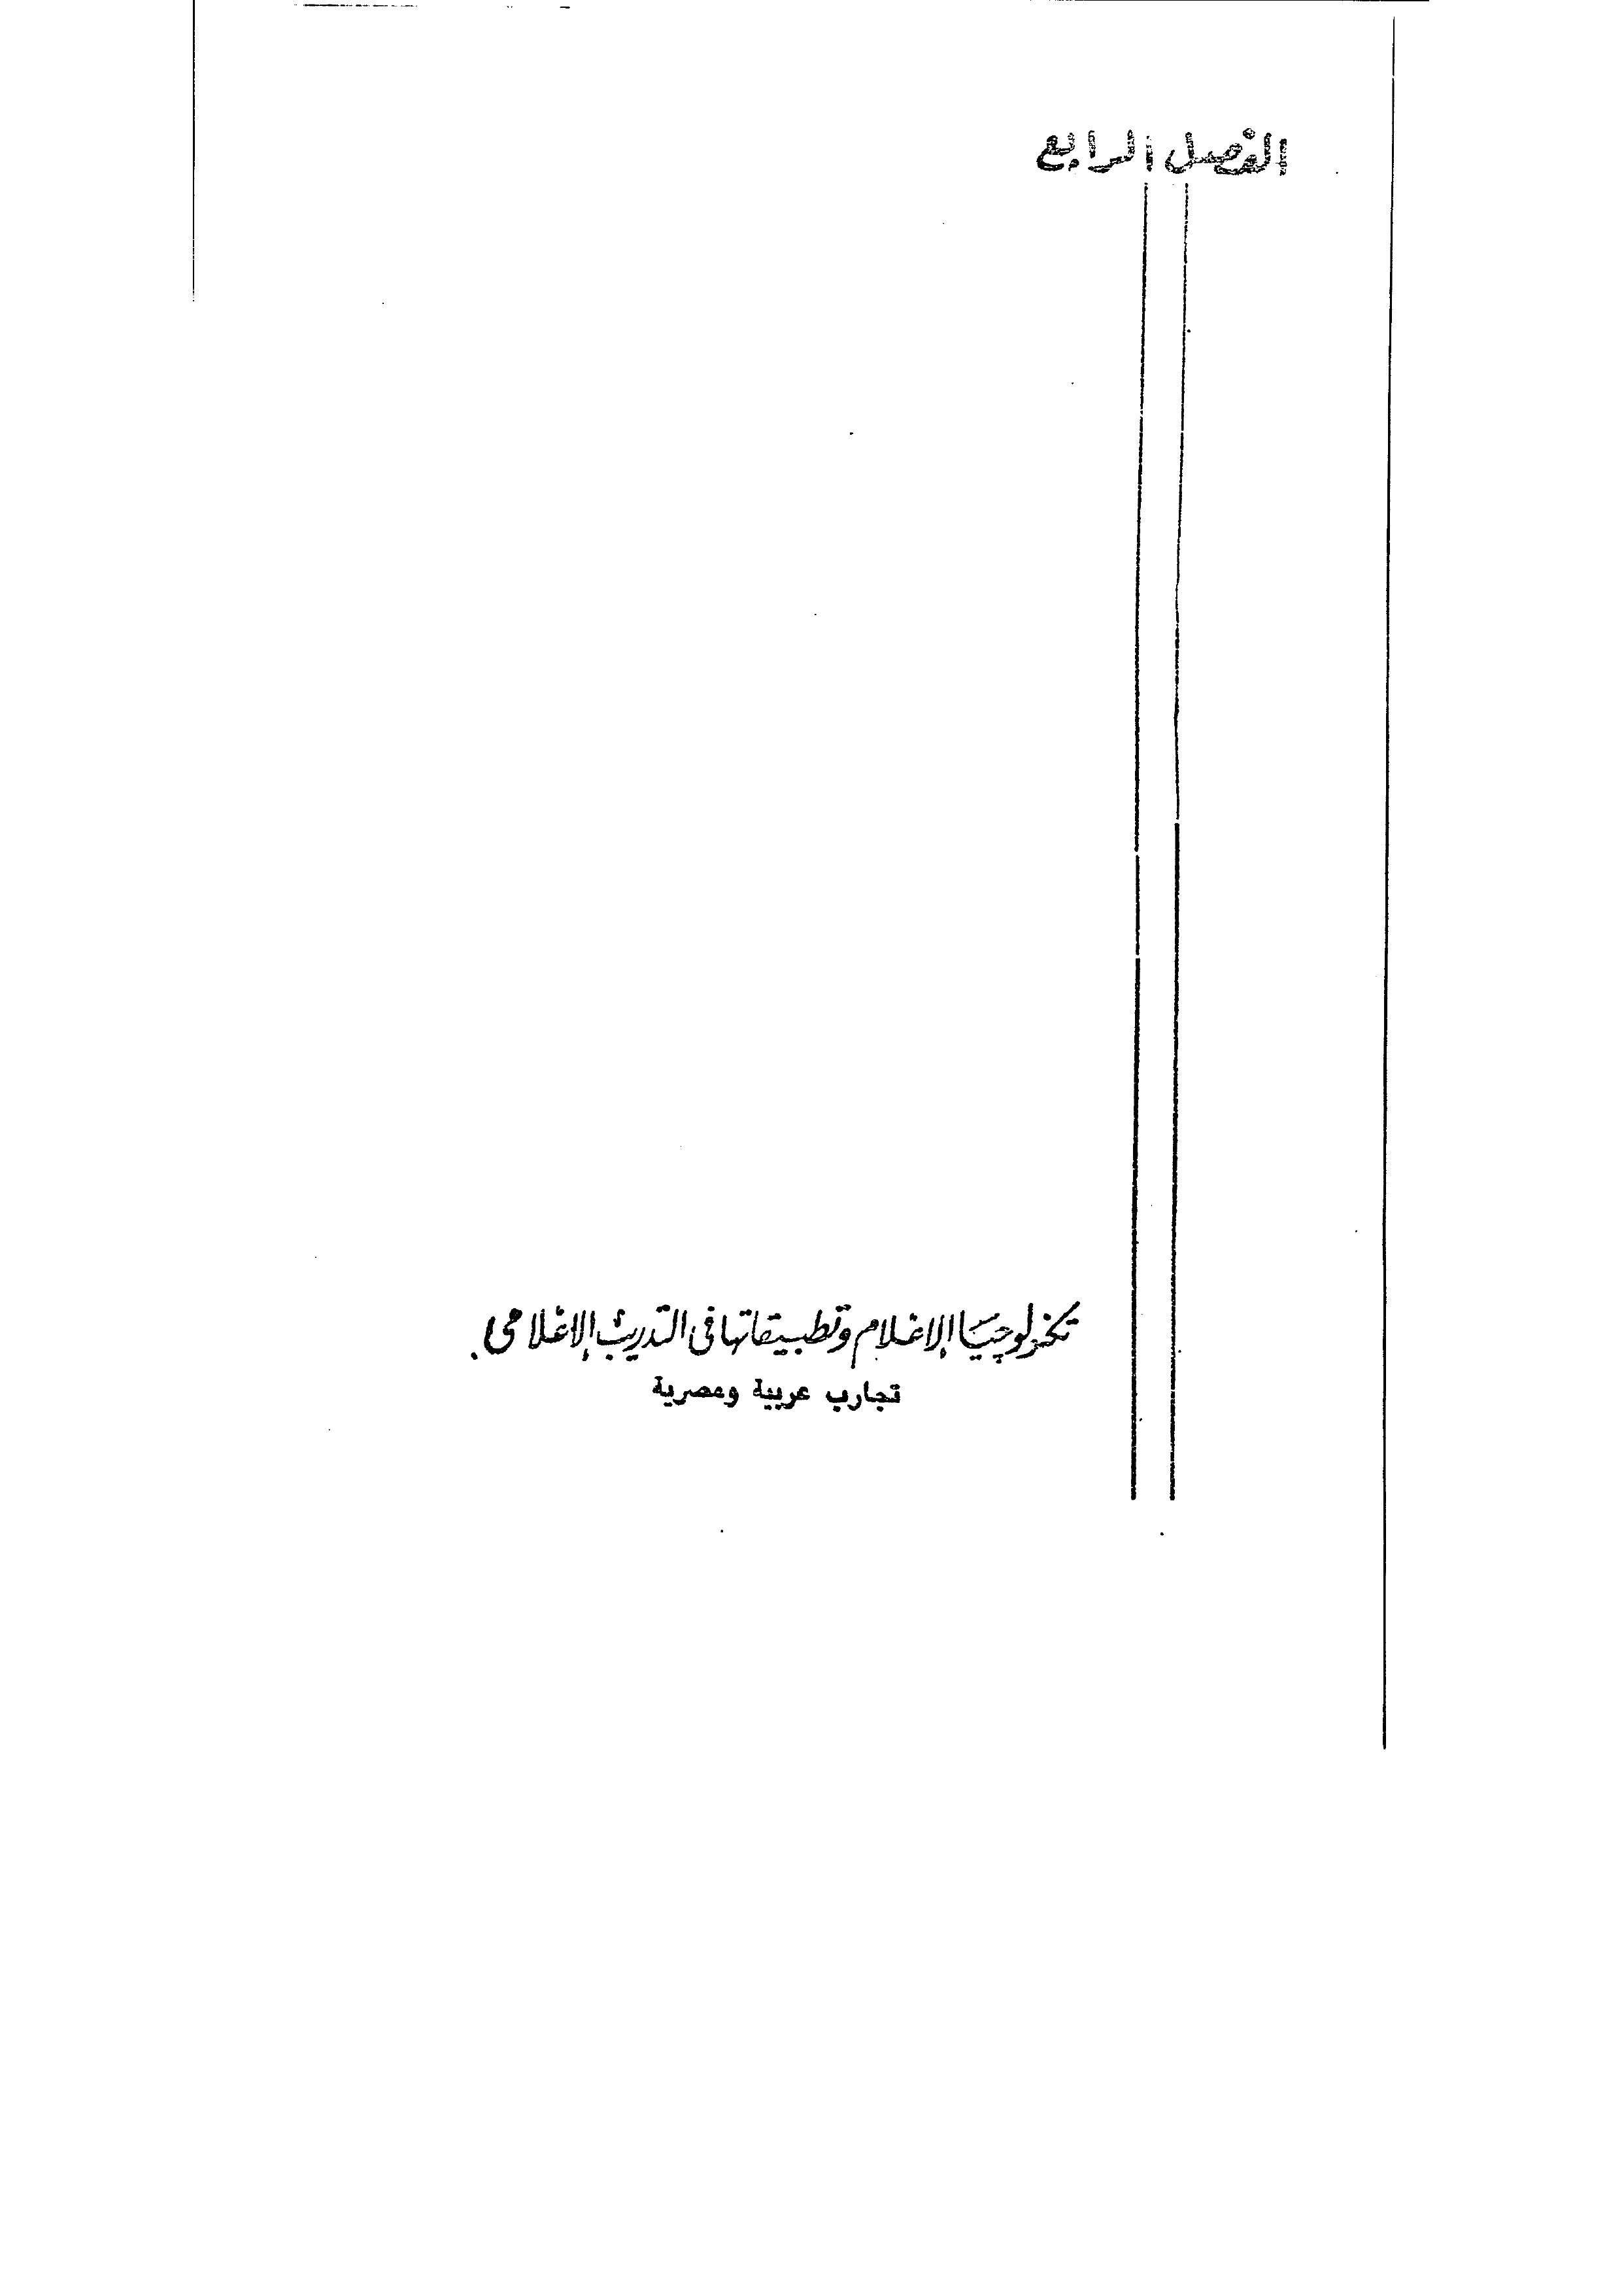 الفصل الرابع
تكنولوجيا الإعلام وتطبيقاتها فى التدريب الإعلامى.
تجارب عربية ومصرية